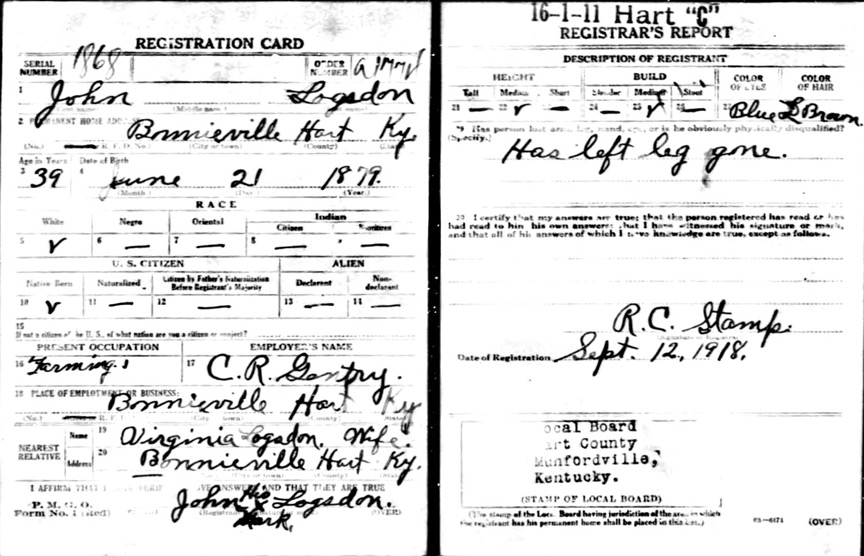 REGISTRATION CARD
SERIAL NUMBER 1868 ORDER NUMBER
1 John Logsdon
(Middle name)
2 PERMANENT HOME ADDRESS
Bonnieville Hart Ky.
(No.) R. F. D. No.) (City or town) (County)
Age in Years Date of Birth
3 39 4 June 21 1879.
(Month.) (Year.)
RACE
White Negro Oriental Indian
Citizen Noncitizen
5 v 6 — 7 — 8 — 9 —
U. S. CITIZEN ALIEN
Native Born Naturalized Citizen by Father's Naturalization Before Registrant's Majority Declarant Non-declarant
10 v 11 — 12 — 13 — 14 —
15
If not a citizen of the U. S., of what nation are you a citizen or subject?
PRESENT OCCUPATION EMPLOYER'S NAME
16 Farming. 17 C. R. Gentry.
18 PLACE OF EMPLOYMENT OR BUSINESS:
Bonnieville Hart Ky
(No.) (County)
NEAREST RELATIVE
Name 19 Virginia Logsdon. Wife.
Address 20 Bonnieville Hart Ky.
I AFFIRM THAT I HAVE VERIFIED ABOVE ANSWERS AND THAT THEY ARE TRUE
P. M. G. O.
Form No. 1 (Red)
John His x Mark. Logsdon.
(OVER)
16-1-11 Hart "C"
REGISTRAR'S REPORT
DESCRIPTION OF REGISTRANT
HEIGHT BUILD COLOR OF EYES COLOR OF HAIR
Tall Medium Short Slender Medium Stout
21 — 22 v 23 — 24 — 25 v 26 — 27 Blue L Brown
29 Has person lost arm, leg, hand, eye, or is he obviously physically disqualified?
(Specify.)
Has left leg gone.
30 I certify that my answers are true; that the person registered has read or has
had read to him his own answers; that I have witnessed his signature or mark,
and that all of his answers of which I have knowledge are true, except as follows.
R.C. Stamp.
Date of Registration Sept. 12, 1918.
ocal Board
art County
Munfordville,
Kentucky.
(STAMP OF LOCAL BOARD)
(The stamp of the Local Board having jurisdiction of the area in which
the registrant has his permanent home shall be placed in this box.)
03—6171 (OVER)